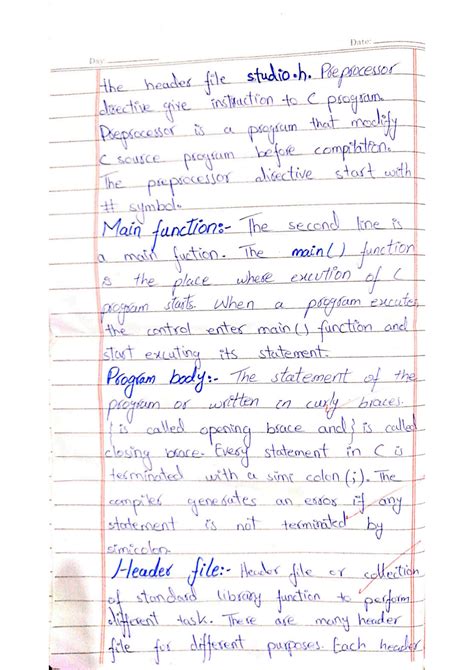 Day:
Date:
the header file studio.h. Preprocessor
directive give instruction to C program.
Preprocessor is a program that modify
C source program before compilation.
The preprocessor directive start with
# symbol.
Main function:- The second line is
a main fuction. The main() function
is the place where exection of C
program starts. When a program executes,
the control enter main() function and
start excuting its statement.
Program body:- The statement of the
program or written in curly braces.
{ is called opening brace and } is called
closing brace. Every statement in C is
terminated with a simi colon (;). The
compiler generates an error if any
statement is not terminated by
simicolon.
Header file:- Header file or collection
of standard library function to perform
different task. There are many header
file for different purposes. Each header